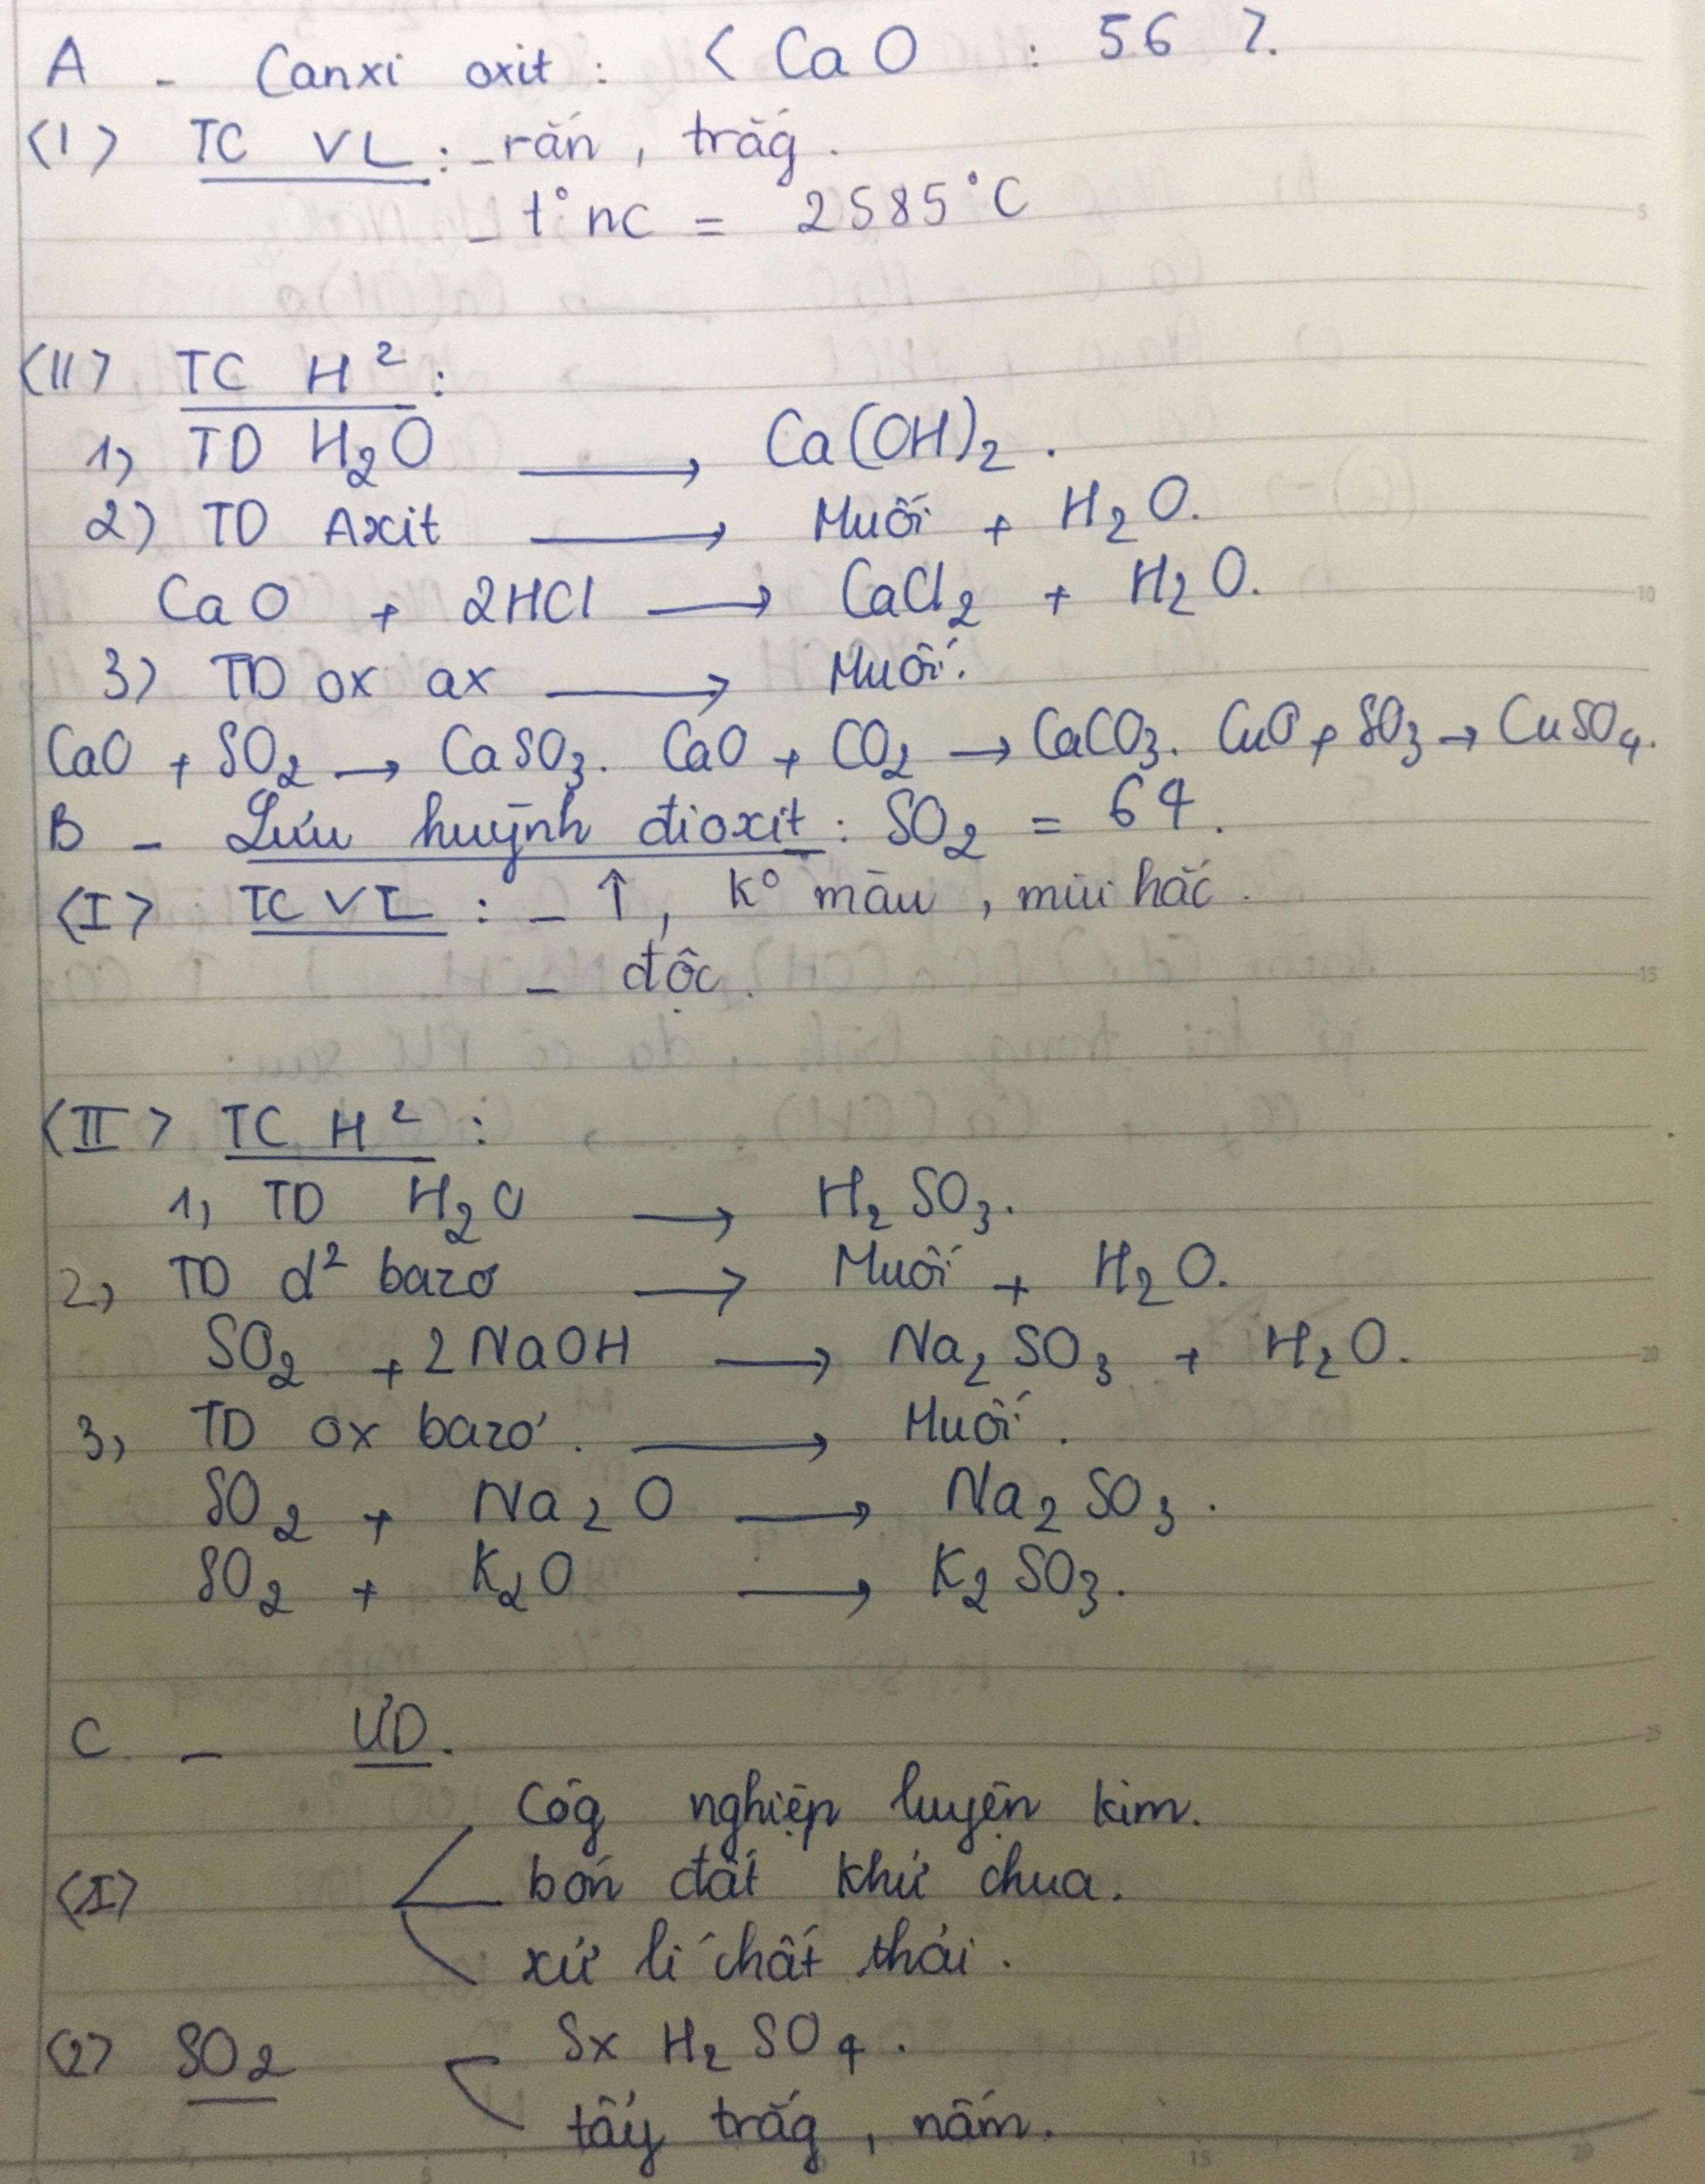 A - Canxi oxit : < CaO : 56 >.
<I> TC VL : - rắn , trắg .
- t° nc = 2585°C
<II> TC H² :
1, TD H₂O → Ca(OH)₂ .
2) TD Axit → Muối + H₂O.
CaO + 2HCl → CaCl₂ + H₂O.
3) TD ox ax → Muối.
CaO + SO₂ → CaSO₃. CaO + CO₂ → CaCO₃. CuO + SO₃ → CuSO₄.
B - Lưu huỳnh đioxit : SO₂ = 64.
<I> TC VL : - ↑, k° màu , mùi hắc .
- độc .
<II> TC H² :
1, TD H₂O → H₂SO₃.
2, TD d² bazơ → Muối + H₂O.
SO₂ + 2NaOH → Na₂SO₃ + H₂O.
3, TD ox bazơ . → Muối .
SO₂ + Na₂O → Na₂SO₃ .
SO₂ + K₂O → K₂SO₃.
C - ƯD.
Côg nghiệp luyện kim.
<I> bón đất khử chua.
xử lí chất thải .
<2> SO₂ Sx H₂SO₄ .
tẩy trắg , nấm.